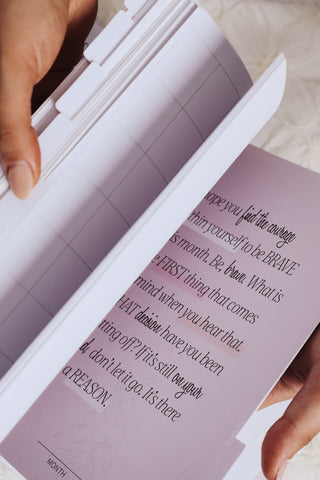 hope you find the courage
within yourself to be BRAVE
this month. Be, brave. What is
the FIRST thing that comes
mind when you hear that.
WHAT decision have you been
putting off? If it's still on your
don't let it go. It's there
a REASON.
MONTH